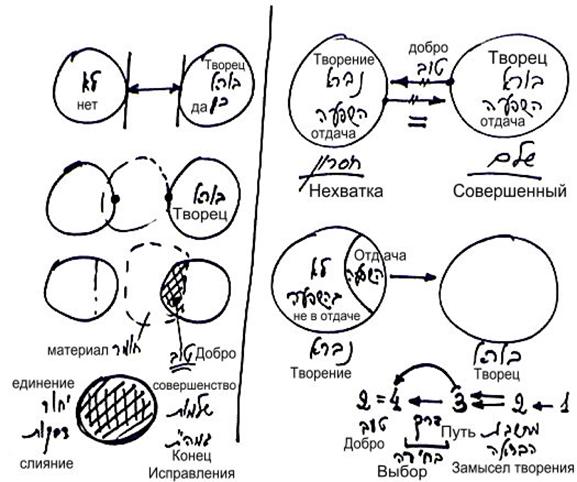 Творец
לא
בורא
нет
да
כן
בורא
Творец
материал
חומר
טוב
Добро
единение
יחוד
דבקות
слияние
совершенство
שלמות
גמה"ת
Конец
Исправления
Творение
נברא
השפעה
отдача
добро
טוב
=
Творец
בורא
השפעה
отдача
חסרון
Нехватка
שלם
Совершенный
לא
בהשפעה
не в отдаче
Отдача
השפעה
נברא
Творение
בורא
Творец
2 = 4 ← 3 ⇐ 2 ← 1
טוב
Добро
דרך
Путь
בחירה
Выбор
מחשבת
הבריאה
Замысел творения